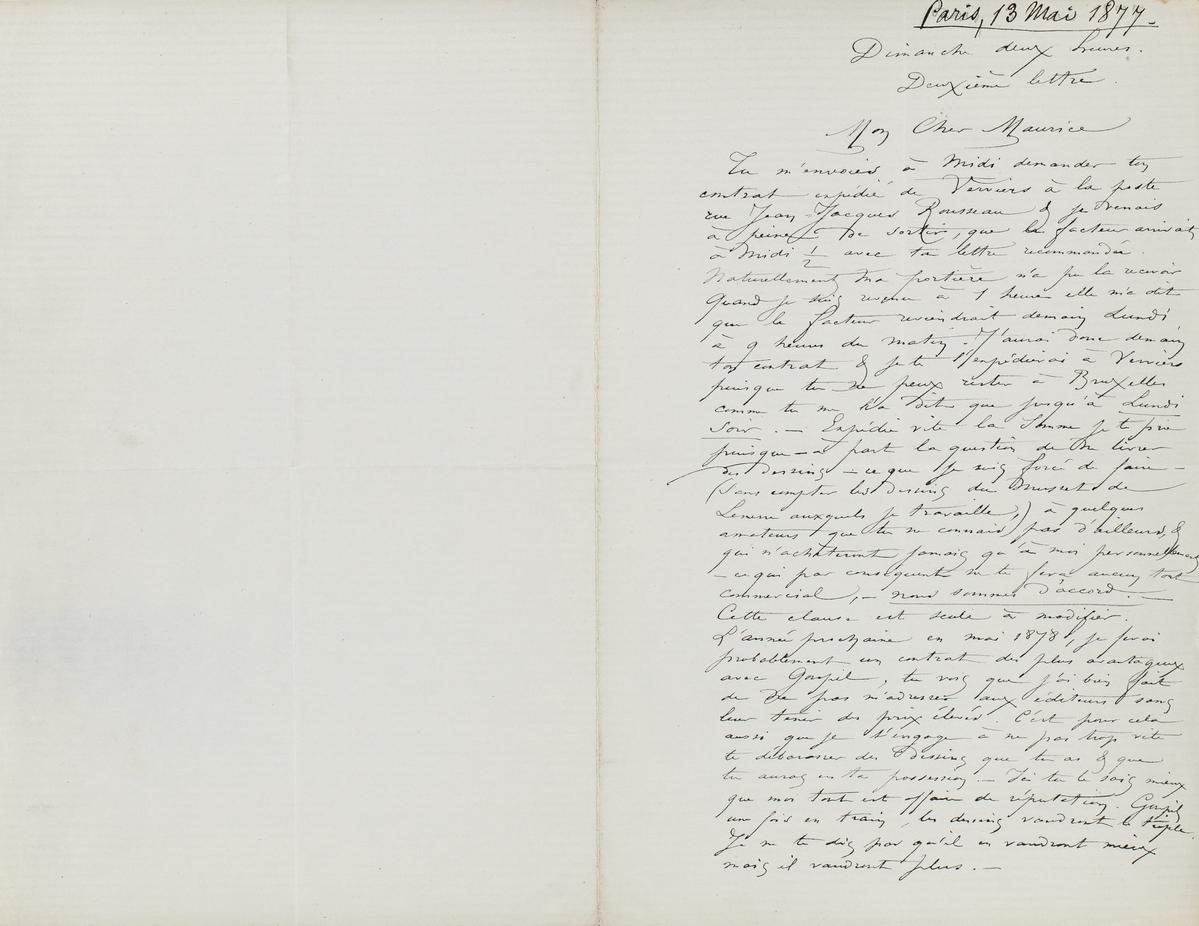 Paris, 13 Mai 1877.
Dimanche deux heures.
Deuxième lettre.
Mon Cher Maurice
Tu m'envoies à Midi demander ton
contrat expédié de Verviers à la poste
rue Jean-Jacques Rousseau & je venais
à peine de sortir, que le facteur arrivait
à Midi ½ avec ta lettre recommandée.
Naturellement ma portière n'a pu la recevoir
Quand je suis revenu à 1 heure elle m'a dit
que le facteur reviendrait demain Lundi
à 9 heures du matin. J'aurai donc demain
ton contrat & je te l'expédierai à Verviers
puisque tu ne peux rester à Bruxelles
comme tu me l'as dit que jusqu'à Lundi
Soir. — Expédie vite la somme je te prie
puisque — à part la question de me livrer
des dessins — ce que je suis forcé de faire —
(sans compter les dessins du Musset de
Lemerre auxquels je travaille,) à quelques
amateurs que tu ne connais pas d'ailleurs, &
qui n'achèteront jamais qu'à moi personnellement
— ce qui par conséquent ne te fera aucun tort
commercial, — nous sommes d'accord. —
Cette clause est seule à modifier.
L'année prochaine en mai 1878, je ferai
probablement un contrat des plus avantageux
avec Goupil, tu vois que j'ai bien fait
de ne pas m'adresser aux éditeurs sans
leur tenir des prix élevés. C'est pour cela
aussi que je t'engage à ne pas trop vite
te débarasser des Dessins que tu as & que
tu auras en ta possession. — Ici tu le sais mieux
que moi tout est affaire de réputation. Goupil
une fois en train, les dessins vaudront le triple.
Je ne te dis pas qu'il en vaudront mieux
mais il vaudront plus. —